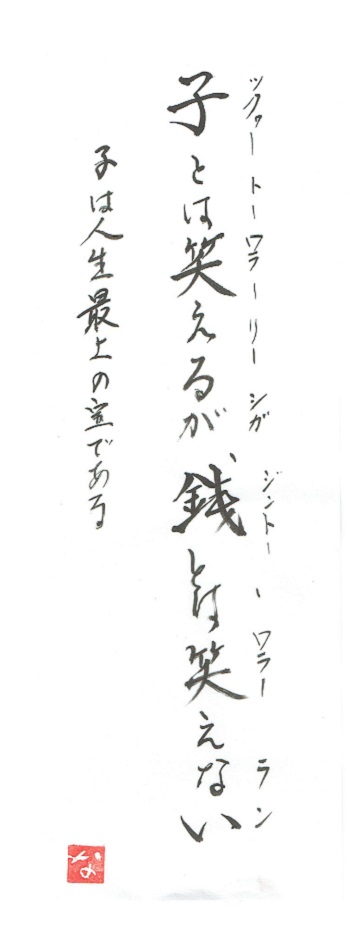 ックァー トー ワラー リー シガ ジントー ワラー ラン
子とは笑えるが、銭とは笑えない
子は人生最上の宝である
な